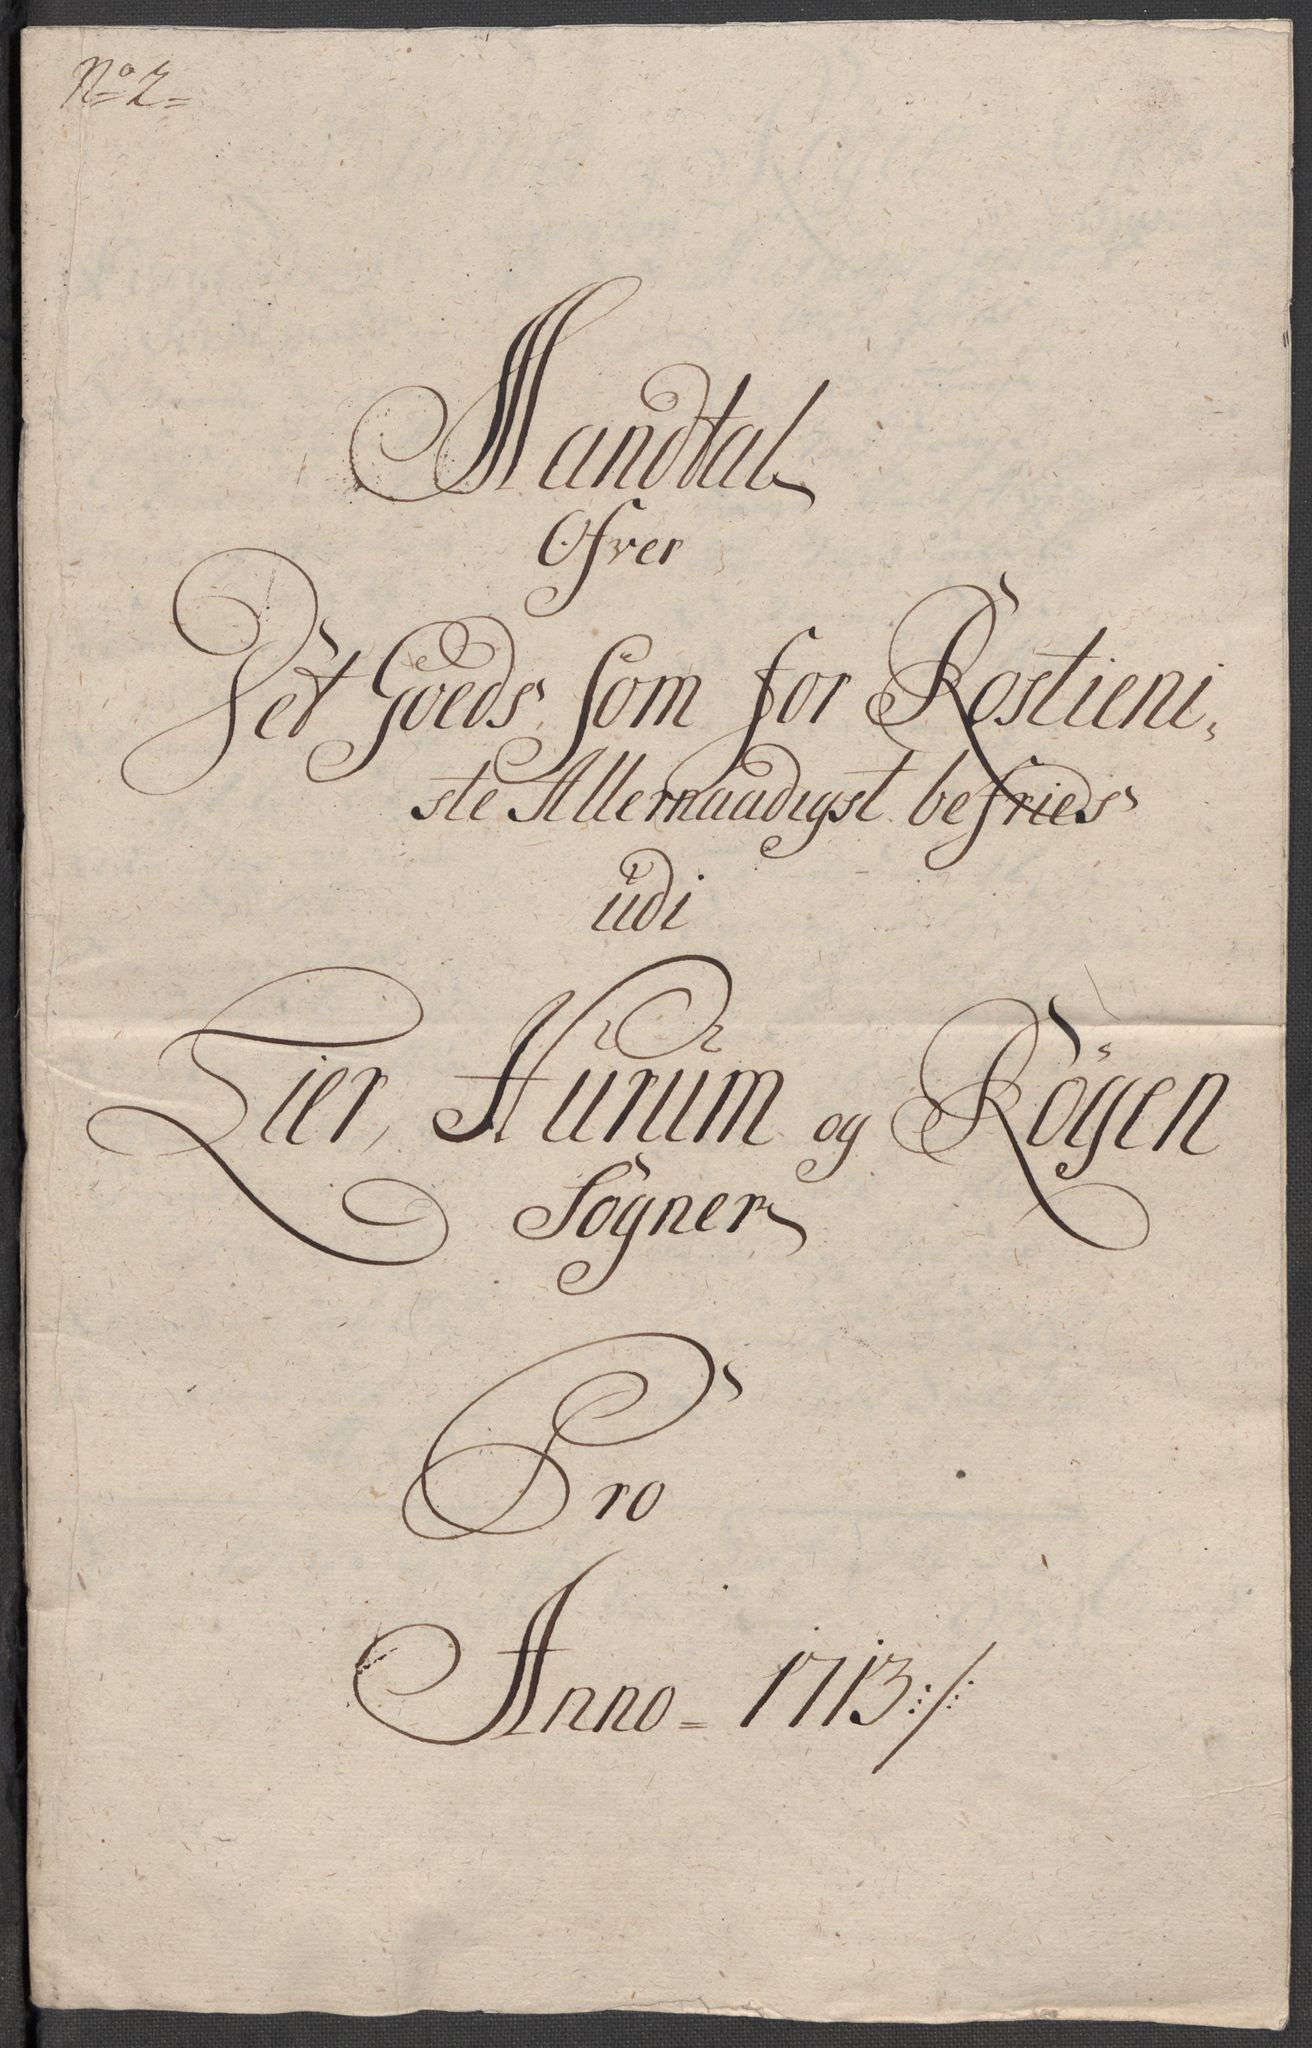 No 2
Mandtal
Ofver
Det Goeds som for Rostieni,
ste Allernaadigst befries
udi
Lier, Hurum og Röÿen
Sogner
Pro
Anno = 1713 :/: